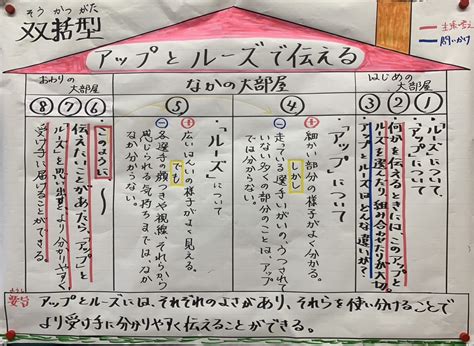 そうかつがた
双括型
アップとルーズで伝える
問いかけ
はじめの大部屋
①
②
③
「ルーズ」について
「アップ」について
何かを伝えるときには、このアップと
ルーズを選んだり、組み合わせたりが大切。
アップとルーズはどんな違いが?
なかの大部屋
④
「アップ」について
＋ 細かい部分の様子がよく分かる。
しかし
－ 走っている選手いがいの、うつされて
いない多くの部分のことは、アップ
では分からない。
⑤
「ルーズ」について
＋ 広いはんいの様子がよく見える。
でも
－ 各選手の顔つきや視線、それらから
感じられる気持ちまでは、なか
なか分からない。
おわりの大部屋
⑥
⑦
⑧
このように、〜
伝えたいことがあたら、「アップ」
「ルーズ」を思い出すと、より分かりやすく
受け手に届けることができる。
要旨
アップとルーズには、それぞれのよさがあり、それらを使い分けることで
より受け手に分かりやすく伝えることができる。